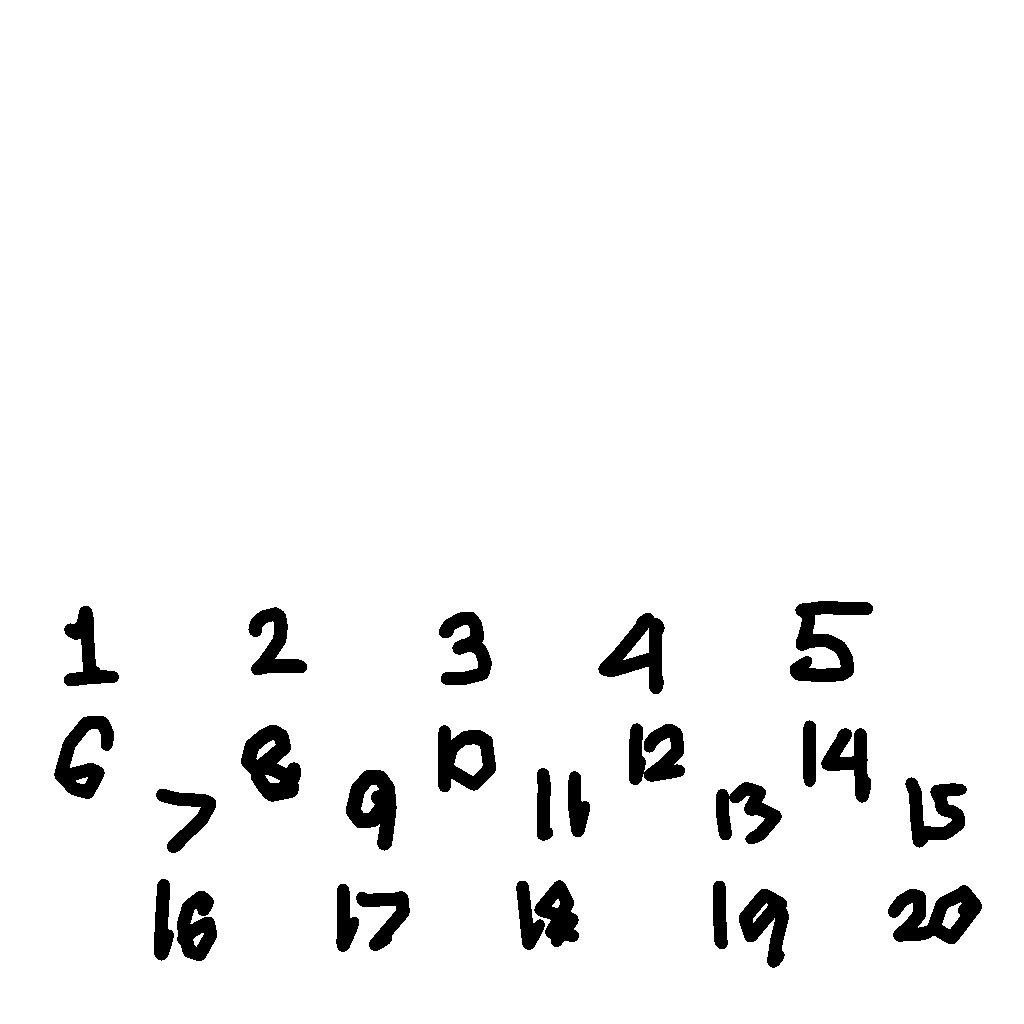 1 2 3 4 5
6 7 8 9 10 11 12 13 14 15
16 17 18 19 20